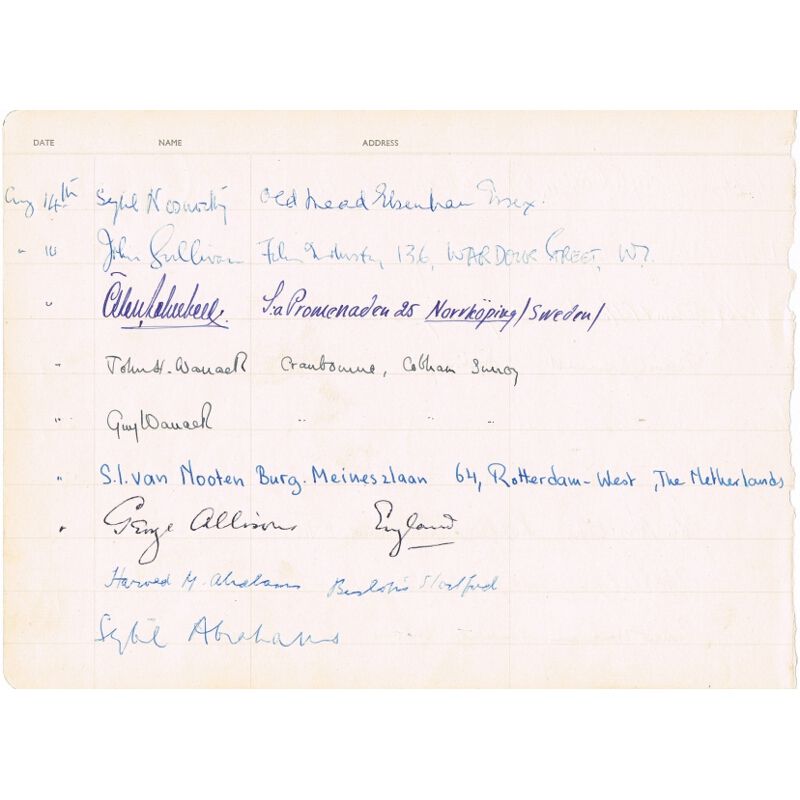 DATE NAME ADDRESS
Aug 14th Sybil Old Mead Elsenham Essex.
" " John Sullivan Film Industry, 136, WARDOUR STREET, W1.
" S:a Promenaden 25 Norrköping/Sweden/
" John H. Cranbourne, Cobham Surrey
" Guy " "
" S.I. van Nooten Burg. Meineszlaan 64, Rotterdam-West, The Netherlands
" George Allison England
Harold M. Abrahams Stortford
Sybil Abrahams